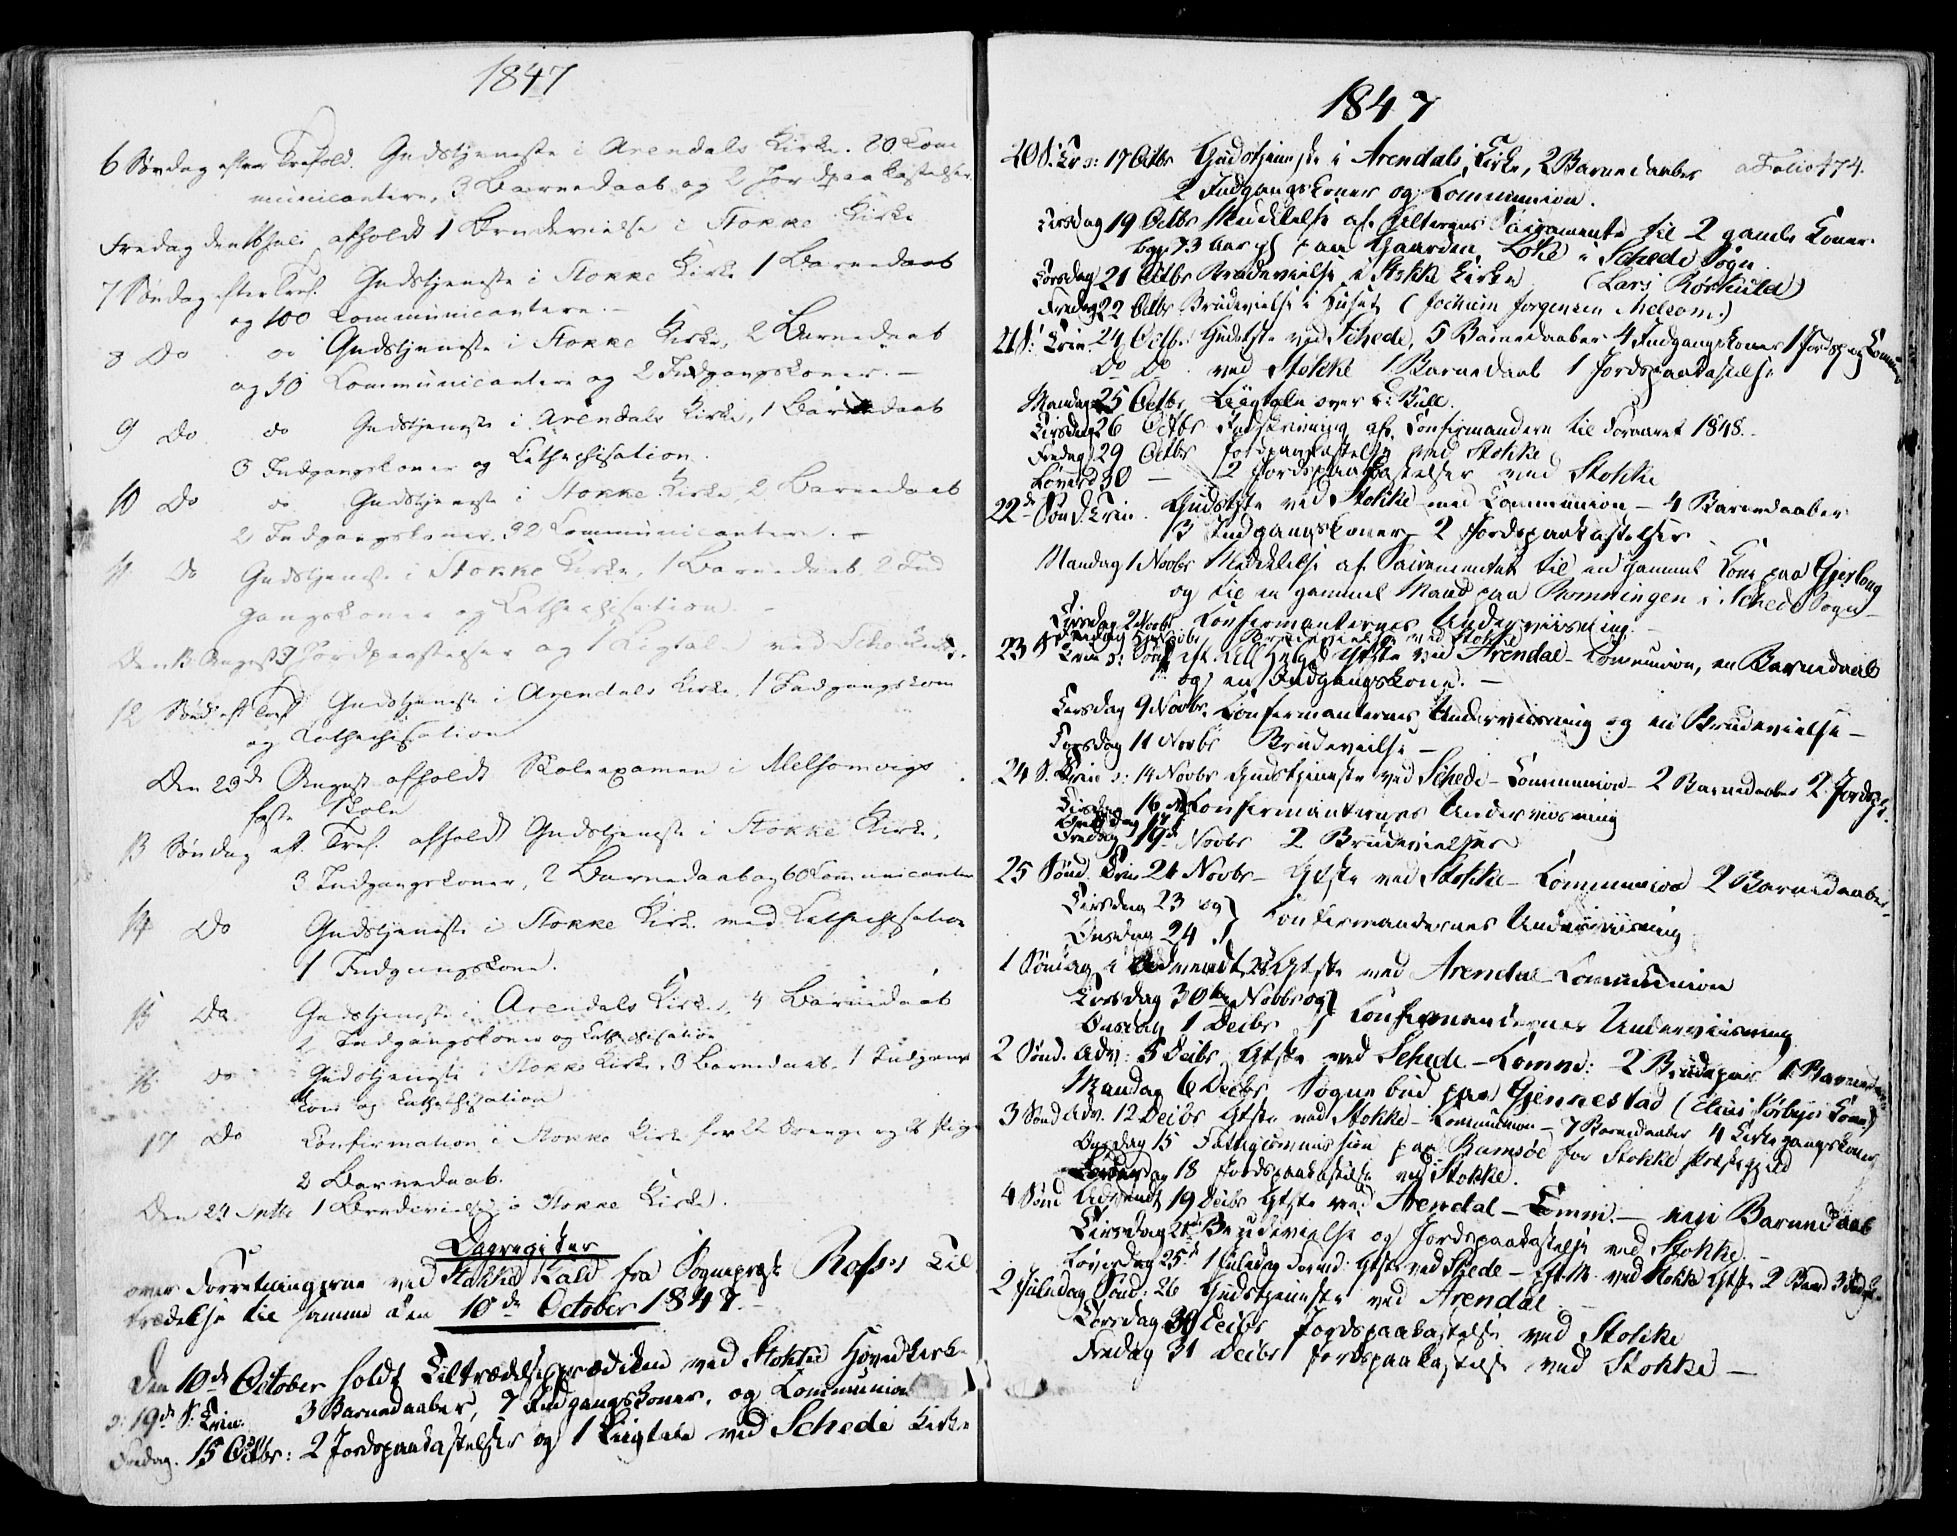 1847
6 Søndag efter Trefold. Gudstjeneste i Arendals Kirke. 20 Com
municantere, 3 Barnedaab og 2 Jordpaakastelser
Fredag den 16 Juli afholdt 1 Brudevielse i Stokke Kirke
7 Søndag efter Tref. Gudstjeneste i Stokke Kirke 1 Barnedaab
og 100 Communicantere. –
8 Do do Gudstjeneste i Stokke Kirke, 2 Barnedaab
og 50 Communicantere og 2 Indgangskoner. –
9 Do do Gudstjeneste i Arendals Kirke, 1 Barnedaab
3 Indgangskoner og Cathechisation.
10 Do do Gudstjeneste i Stokke Kirke, 2 Barnedaab
2 Indgangskoner, 92 Communicantere. –
11 Do Gudstjeneste i Stokke Kirke, 1 Barnedaab 2 Ind
gangskoner og Cathechisation. –
Den 13 August 3 Jordpaastelser og 1 Ligtale ved
12 Sønd. eft Tref Gudstjeneste i Arendals Kirke, 1 Indgangskone
og Cathechisation
Den 23de August afholdt Skoleexamen i Melsomvigs
faste Skole
13 Søndag eft. Tref. afholdt Gudstjeneste i Stokke Kirke,
3 Indgangskoner, 2 Barnedaab og 60 Communicanter
14 Do Gudstjeneste i Stokke Kirke med Cathechisation
1 Indgangskone.
15 Do Gudstjeneste i Arendals Kirke, 4 Barnedaab
Indgangskoner og Cathechisation
16 do Gudstjeneste i Stokke Kirke, 3 Barnedaab, 1 Indgangs
kone og Cathechisation
17 Do Confirmation i Stokke Kirke for 22 Drenge og Pige
2 Barnedaab.
Den 24 Septb 1 Brudevielse i Stokke Kirke.
Dagregister
over Forretningerne ved Stokke Kald fra Sogneprest Til
trædelse til samme den 10de October 1847. –
Den 10de October holdt Tiltrædelsesprædiken ved Stokke Hovedkirke
ɔ: 19de S. Trin. 3 Barnedaaber, 7 Indgangskoner, og Communion
Fredag. 15 Octbr: 2 Jordspaakastelser og 1 Liigtale ved Schede Kirke
1847
20 S. Tr ɔ: 17 Octbr Gudstjeneste i Arendals Kirke, 2 Barnedaaber Folio 474.
2 Indgangskoner og Communion.
Tirsdag 19 Octbr Meddelelse af Alterens Sacramente til 2 gamle Koner
73 Aar gl paa Gaarden Loke i Schede Sogn
Torsdag 21 Octbr Brudevielse i Stokke Kirke (Lars Rørkuld)
Fredag 22 Octbr Brudevielse i Huset (Jochum Jørgensen Melsom.)
21 S: Trin. 24 Octbr Gudstste ved Schede, 5 Barnedaaber 4 Indgangskoner 1 Jordsp og Commun
Do Do ved Stokke 1 Barnedaab 1 Jordspaakastelse
Mandag 25 Octbr Liigtale over Bull.
Tirsdag 26 Octbr Indskrivning af Confirmandere til Foraaret 1848.
Fredag 29 Octbr Jordspaakastelse ved Stokke
Løverd 30 – 2 Jordspaakastelser ved Stokke
22de Sønd. Trin. Gudstste ved Stokke med Communion – 4 Barnedaaber
3 Indgangskoner 2 Jordspaakastelser
Mandag 1 Novbr Meddelelse af Sacramentet til en gammel Kone paa Gjerlaug
og til en gammel Mand paa Romningen i Schede Sogn –
Tirsdag 2 Novbr Confirmanternes Underviisning. –
Fredag 5 Novbr Brudevielse ved Stokke
23 S. Trin ɔ: Sønd. eft All Helgd Gtste ved Arendal – Communion, en Barnedaab
og en Indgangskone. –
Tirsdag 9 Novbr. Confirmanternes Underviisning og en Brudevielse –
Torsdag 11 Novbr Brudevielse –
24 S. Trin ɔ: 14 Novbr Gudstjeneste ved Schede – Communion – 2 Barnedaaber 2 Jordsp.
Tirsdag 16 og Onsdag 17 } Confirmanternes Underviisning
Fredag 19de Novbr 2 Brudevielser
25 Sønd. Trin 21 Novbr – Gtste ved Stokke – Communion 2 Barnedaaber
Tirsdag 23 og } Confirmandernes Underviisning
Onsdag 24 }
1 Søndag i Advendt 28 Gtste ved Arendal Communion
Tirsdag 30te Novbr og } Confirmandernes Underviisning
Onsdag 1 Decbr }
2 Sønd. Adv: 5 Decbr Gtste ved Schede – Commn: 2 Brudepar 1 Barnedaab
Mandag 6 Decbr Sognebud paa Gjennestad (Elias Sørbyes Kone)
3 Sønd Adv. 12 Decbr Gtste ved Stokke – Communion – 7 Barnedaaber 4 Kirkegangskoner
Onsdag 15 Fattigcommission paa Bamsøe for Stokke Præstegjeld
Løverdag 18 Jordspaakastelse ved Stokke.
4 Sønd Advendt 19 Decbr Gtste ved Arendal – Comm. – een Barnedaab
Tirsdag 21de Brudevielse og Jordspaakastelse ved Stokke –
Løverdag 25de 1 Juledag Formd. Gtste ved Schede – Eft.M. ved Stokke Gtste 2 Barned 3 Indgk.
2 Juledag Sønd: 26 Gudstjeneste ved Arendal –
Torsdag 30 Decbr Jordspaakastelse ved Stokke
Fredag 31 Decbr Jordspaakastelse ved Stokke –